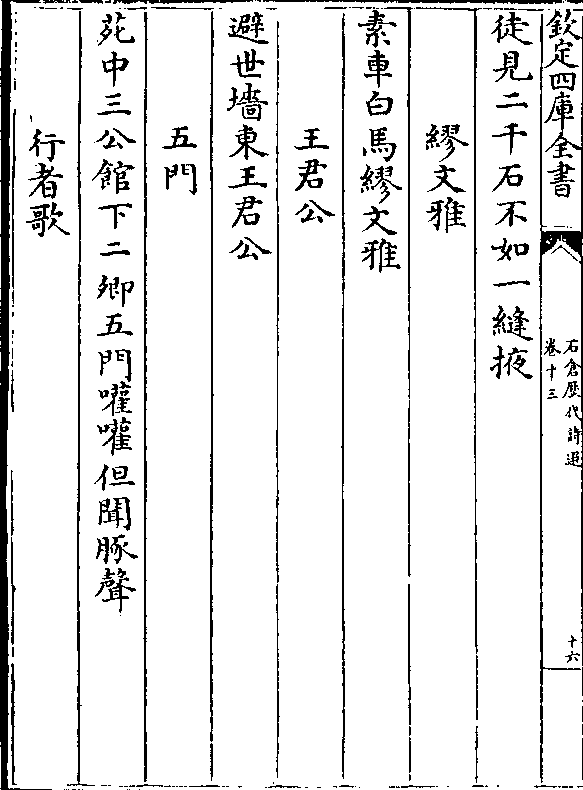 欽定四庫全書
石倉歴代詩選
卷十三
十六
徒見二千石不如一縫掖
繆文雅
素車白馬繆文雅
王君公
避世墻東王君公
五門
苑中三公館下二卿五門嚾嚾但聞豚聲
行者歌